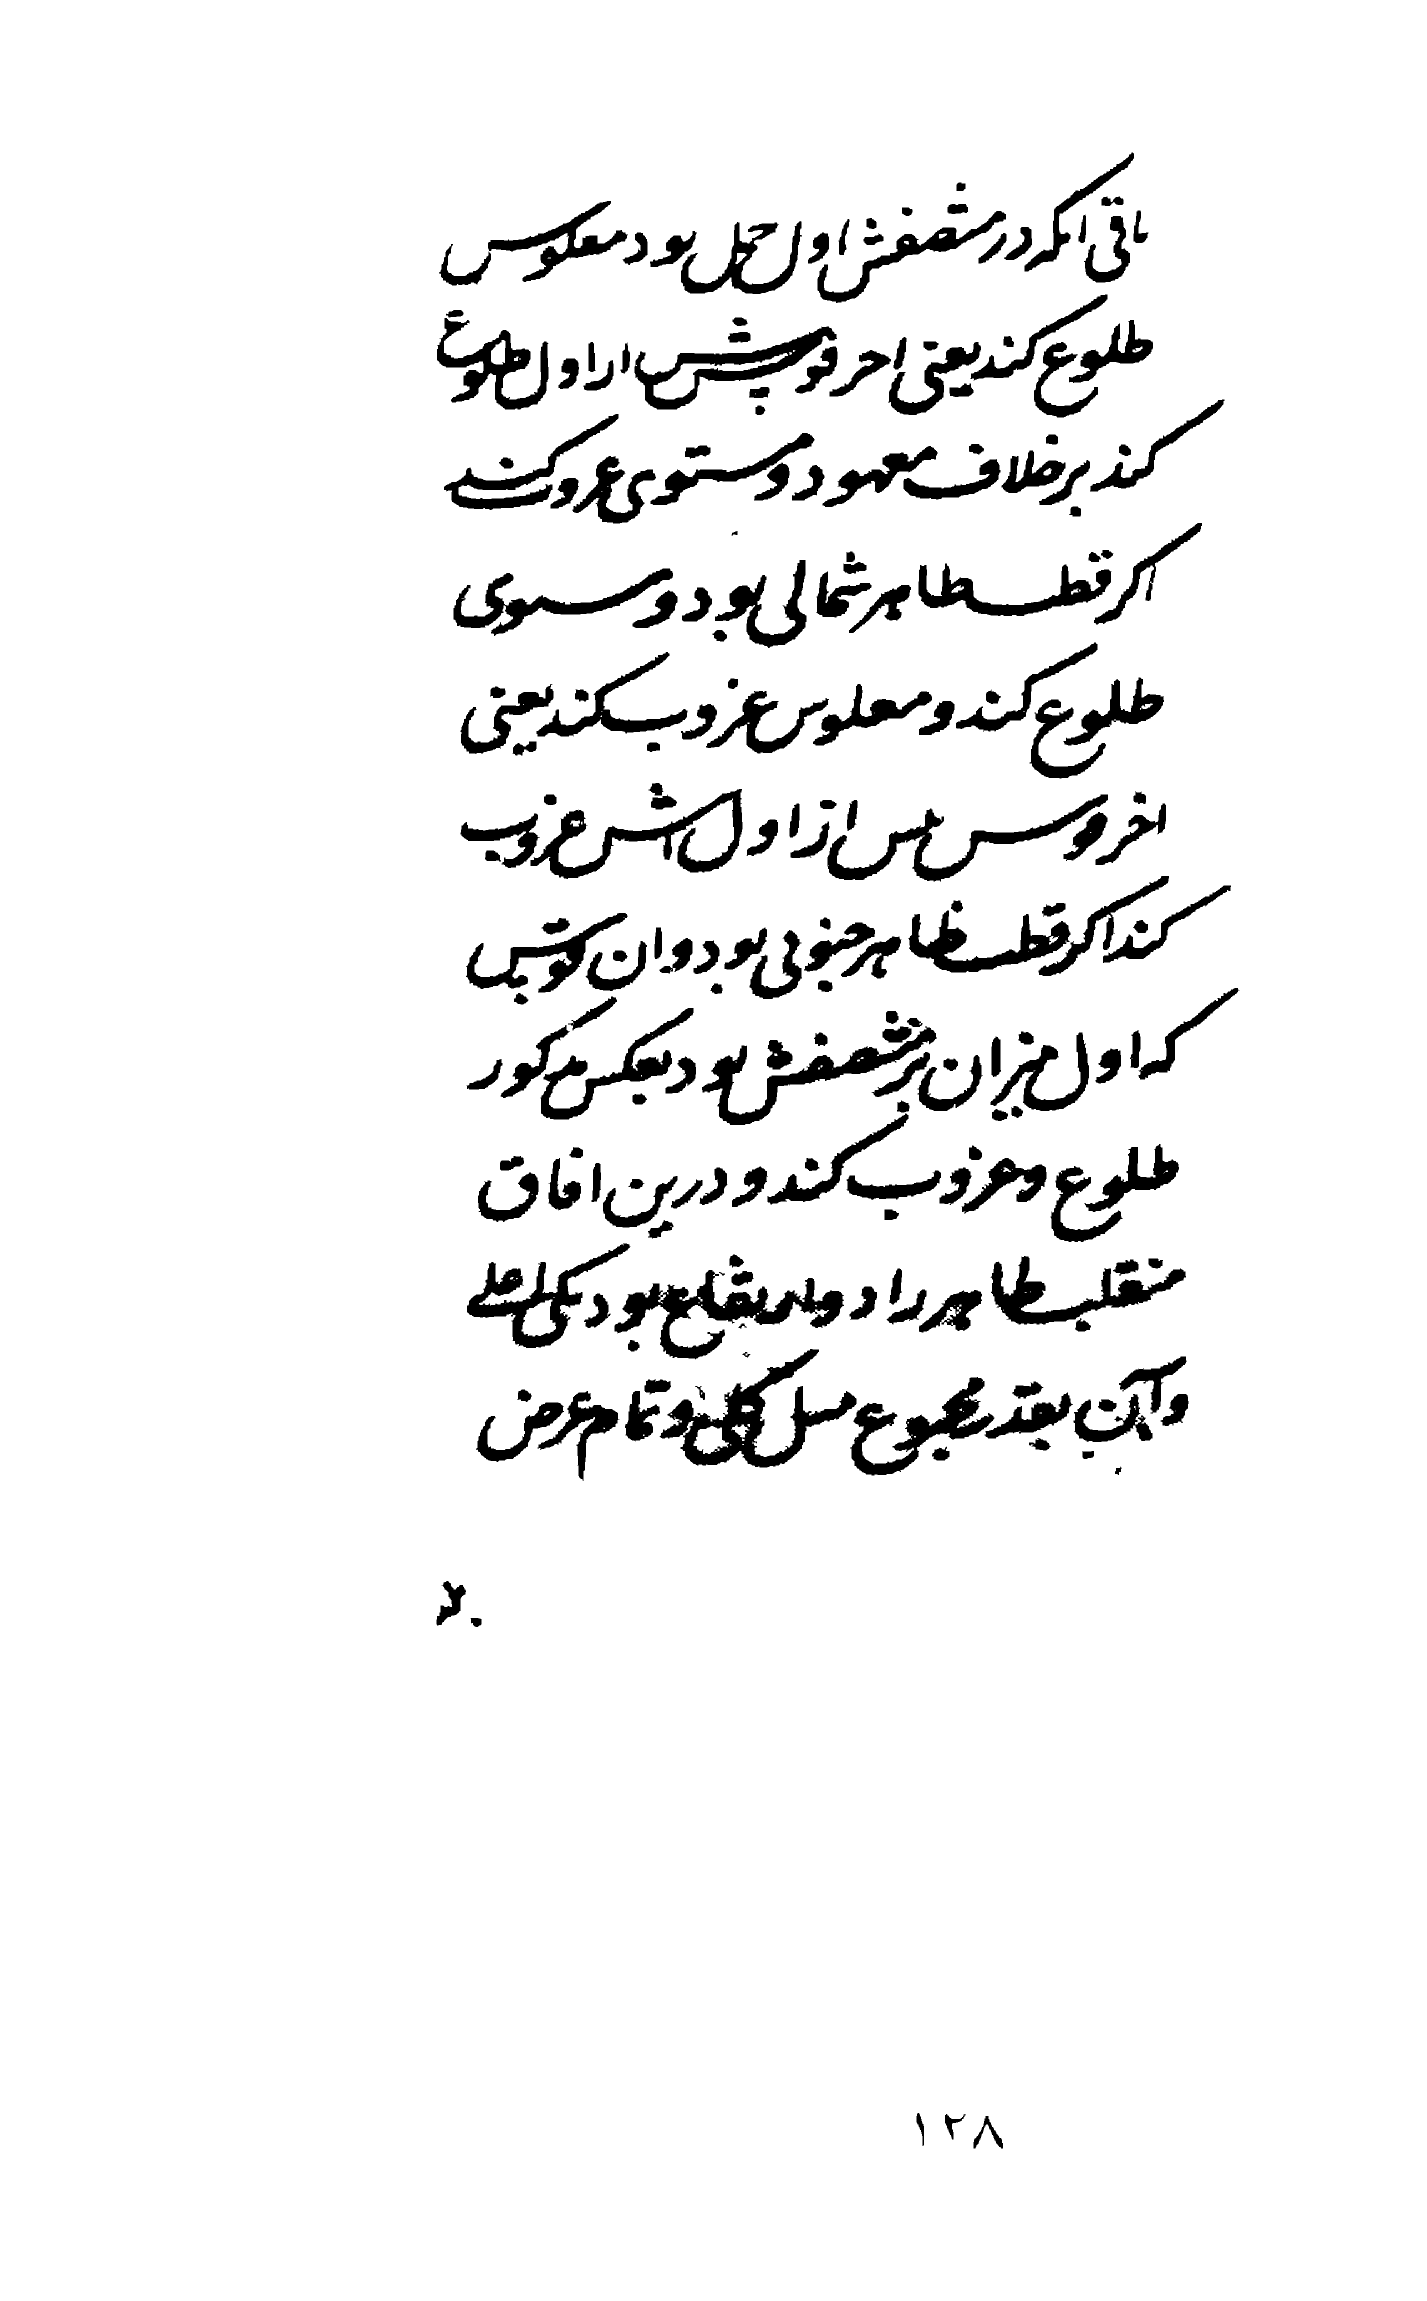 باقی انکه در منتصفش اول حمل بود معکوس
طلوع کند یعنی اخر قوسش پیش از اول طلوع
کند بر خلاف معهود و مستوی غروب کند
اکر قطب ظاهر شمالی بود و مستوی
طلوع کند و معکوس غروب کند یعنی
اخر قوس پس از اولش غروب
کند اکر قطب ظاهر جنوبی بود و ان قوس
که اول میزان بر منتصفش بود بعکس مذکور
طلوع و غروب کند و درین افاق
منقلب ظاهر را دو ارتفاع بود یکی اعلی
وآن بقدر مجموع میل کلی و تمام عرض
۱۲۸